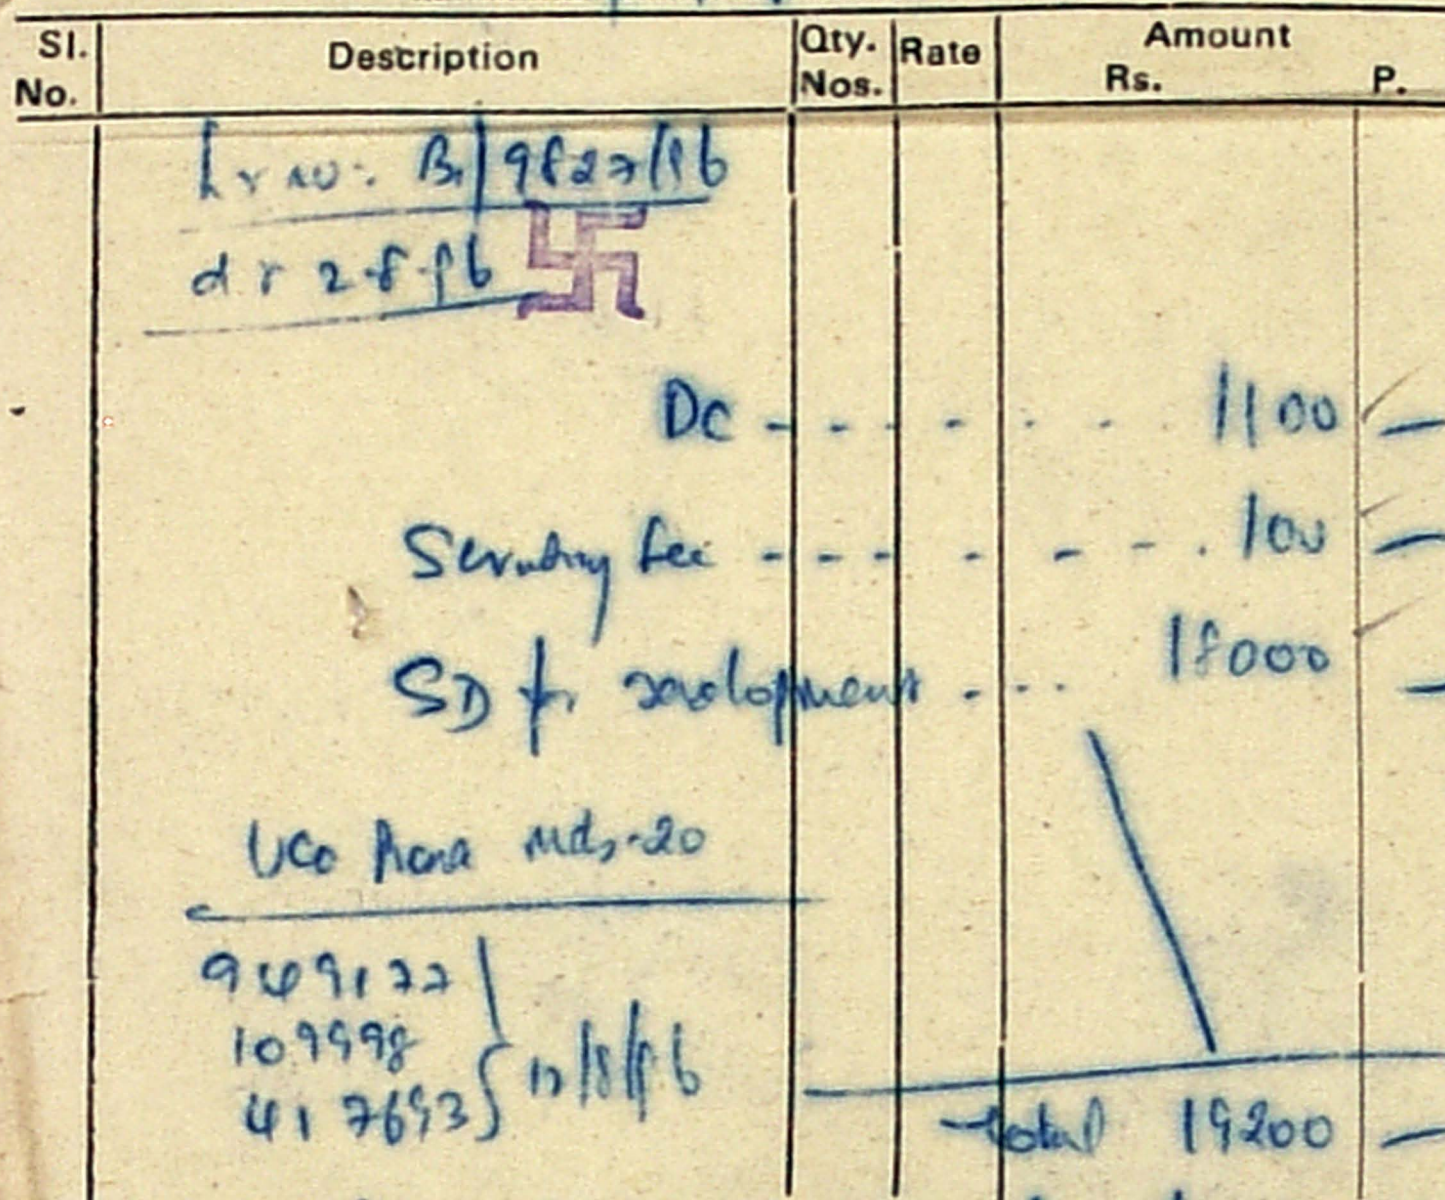 Sl. No. Description Qty. Nos. Rate Amount Rs. P.
Lr no: B1/9827/86
dt 2-8-86
DC - - - - - - - 1100 —
Scrutiny fee - - - - - - - 100 —
SD for development - - - - 18000 —
UCO Mds-20
949177
109998
417693
total 19200 —